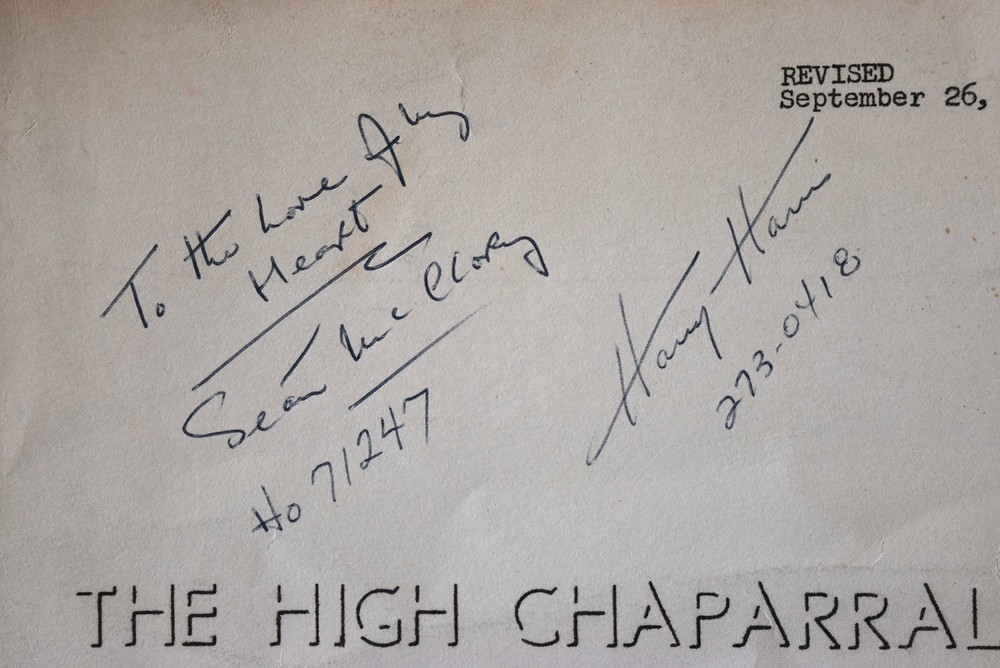 REVISED
September 26,
To the Love of my
Heart
Sean McClory
Ho 71247
Harry Harris
273-0418
THE HIGH CHAPARRAL